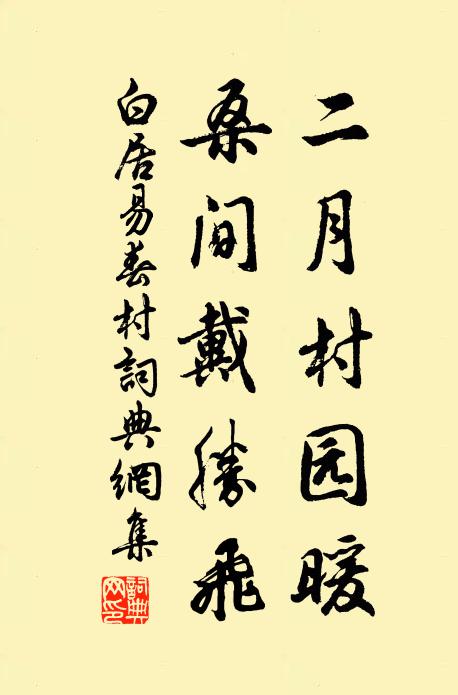 二月村园暖
桑间戴勝飛
白居易春村詞典網集
詞典網印